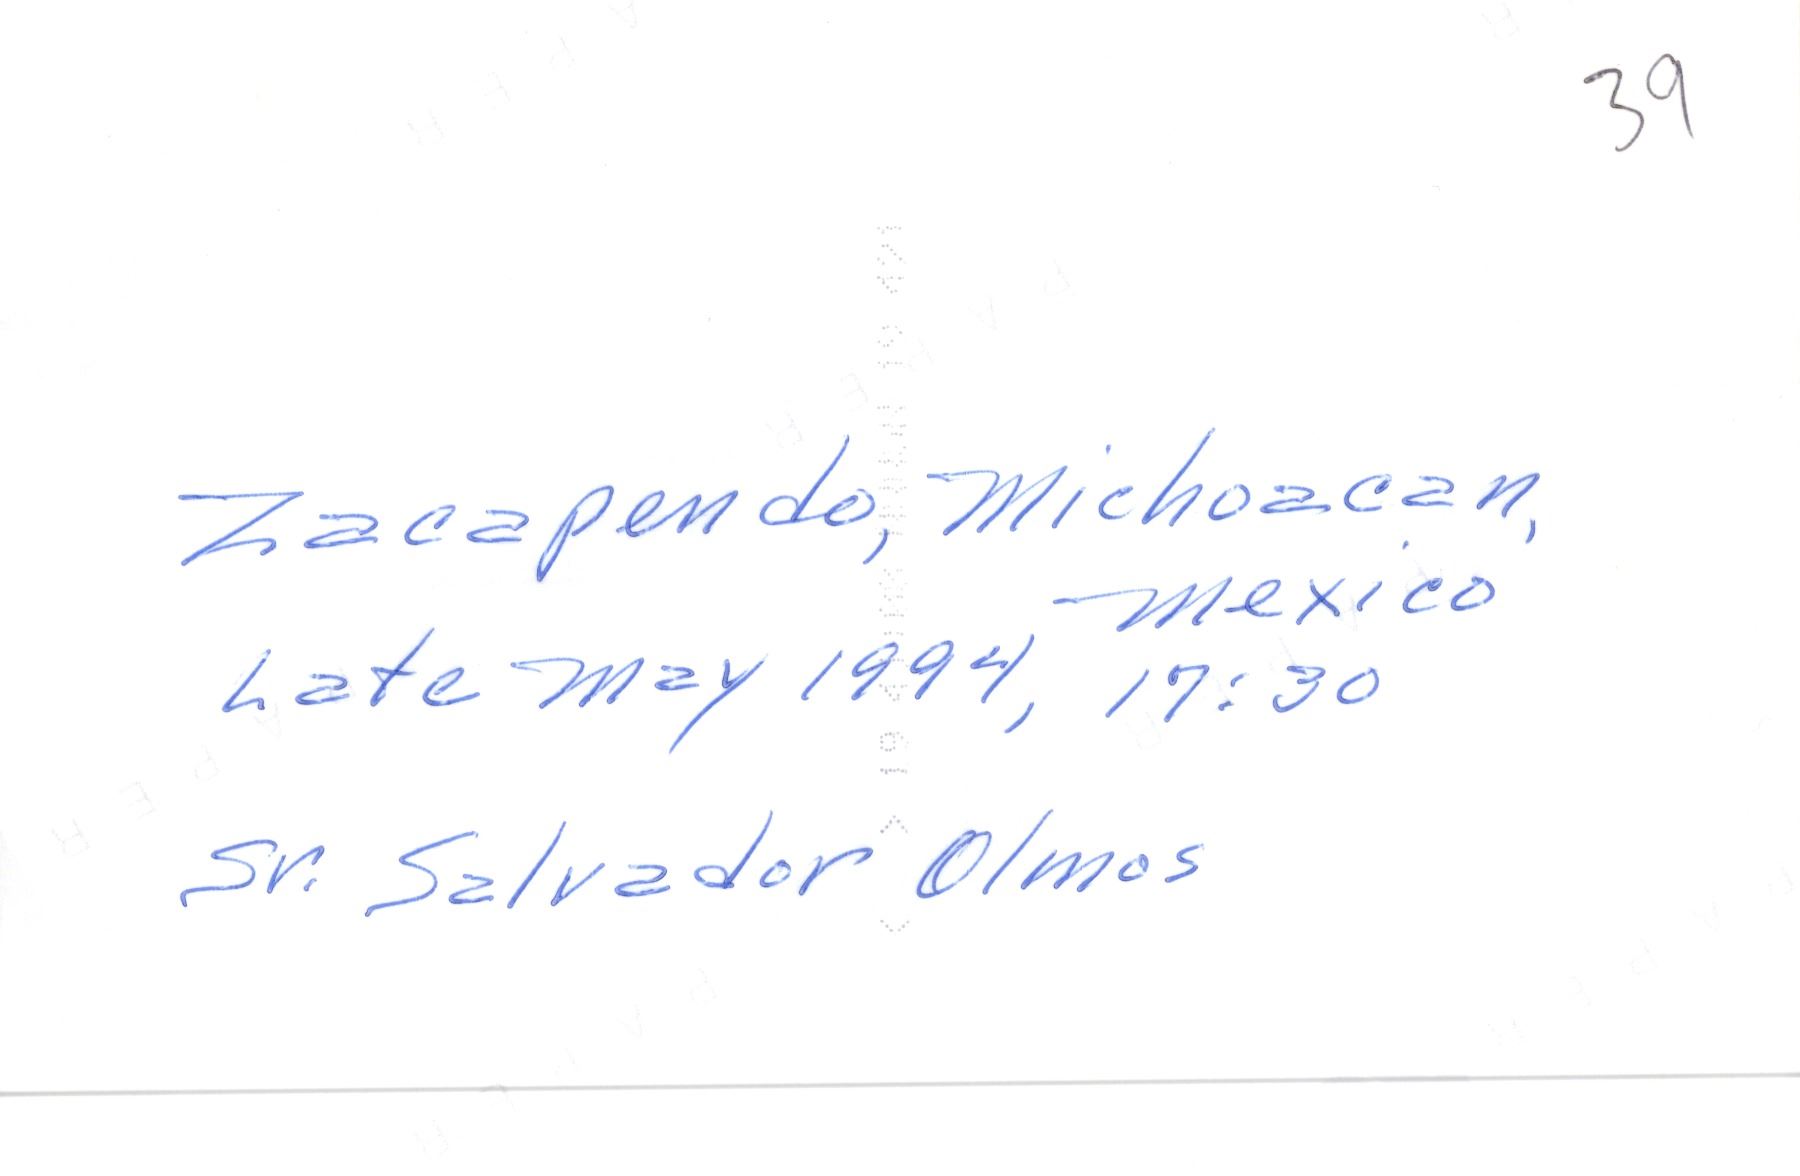 39
Zacapendo, Michoacan,
Mexico
Late May 1994, 17:30
Sr. Salvador Olmos